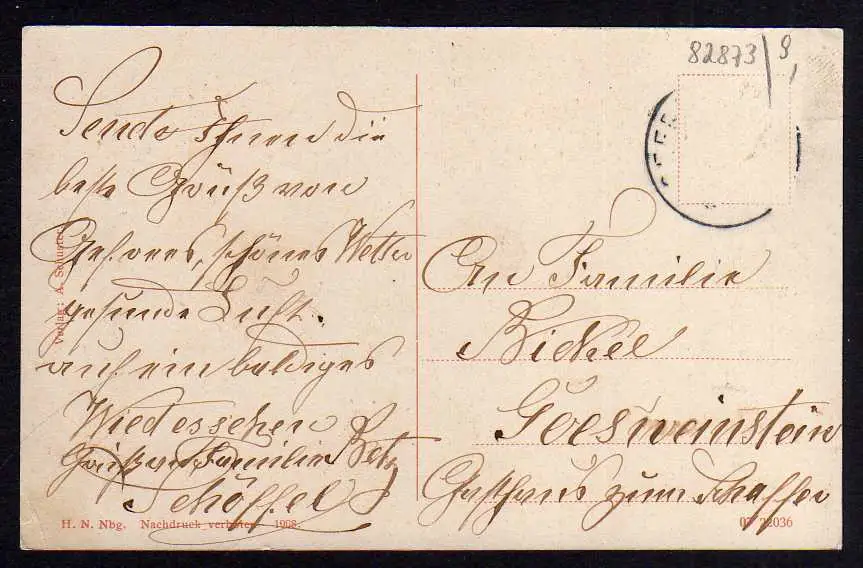 82873/9,
Sende Ihnen die
beste Grüß von
schönes Wetter
gesunde Luft.
auf ein baldiges
Wiedessehen
Familie Betz
Schöffel
Verlag: A. Schuster
An Familie
Bickel
Goesweinstein
Gasthaus zum
H. N. Nbg. Nachdruck verboten 1908.
07 22036